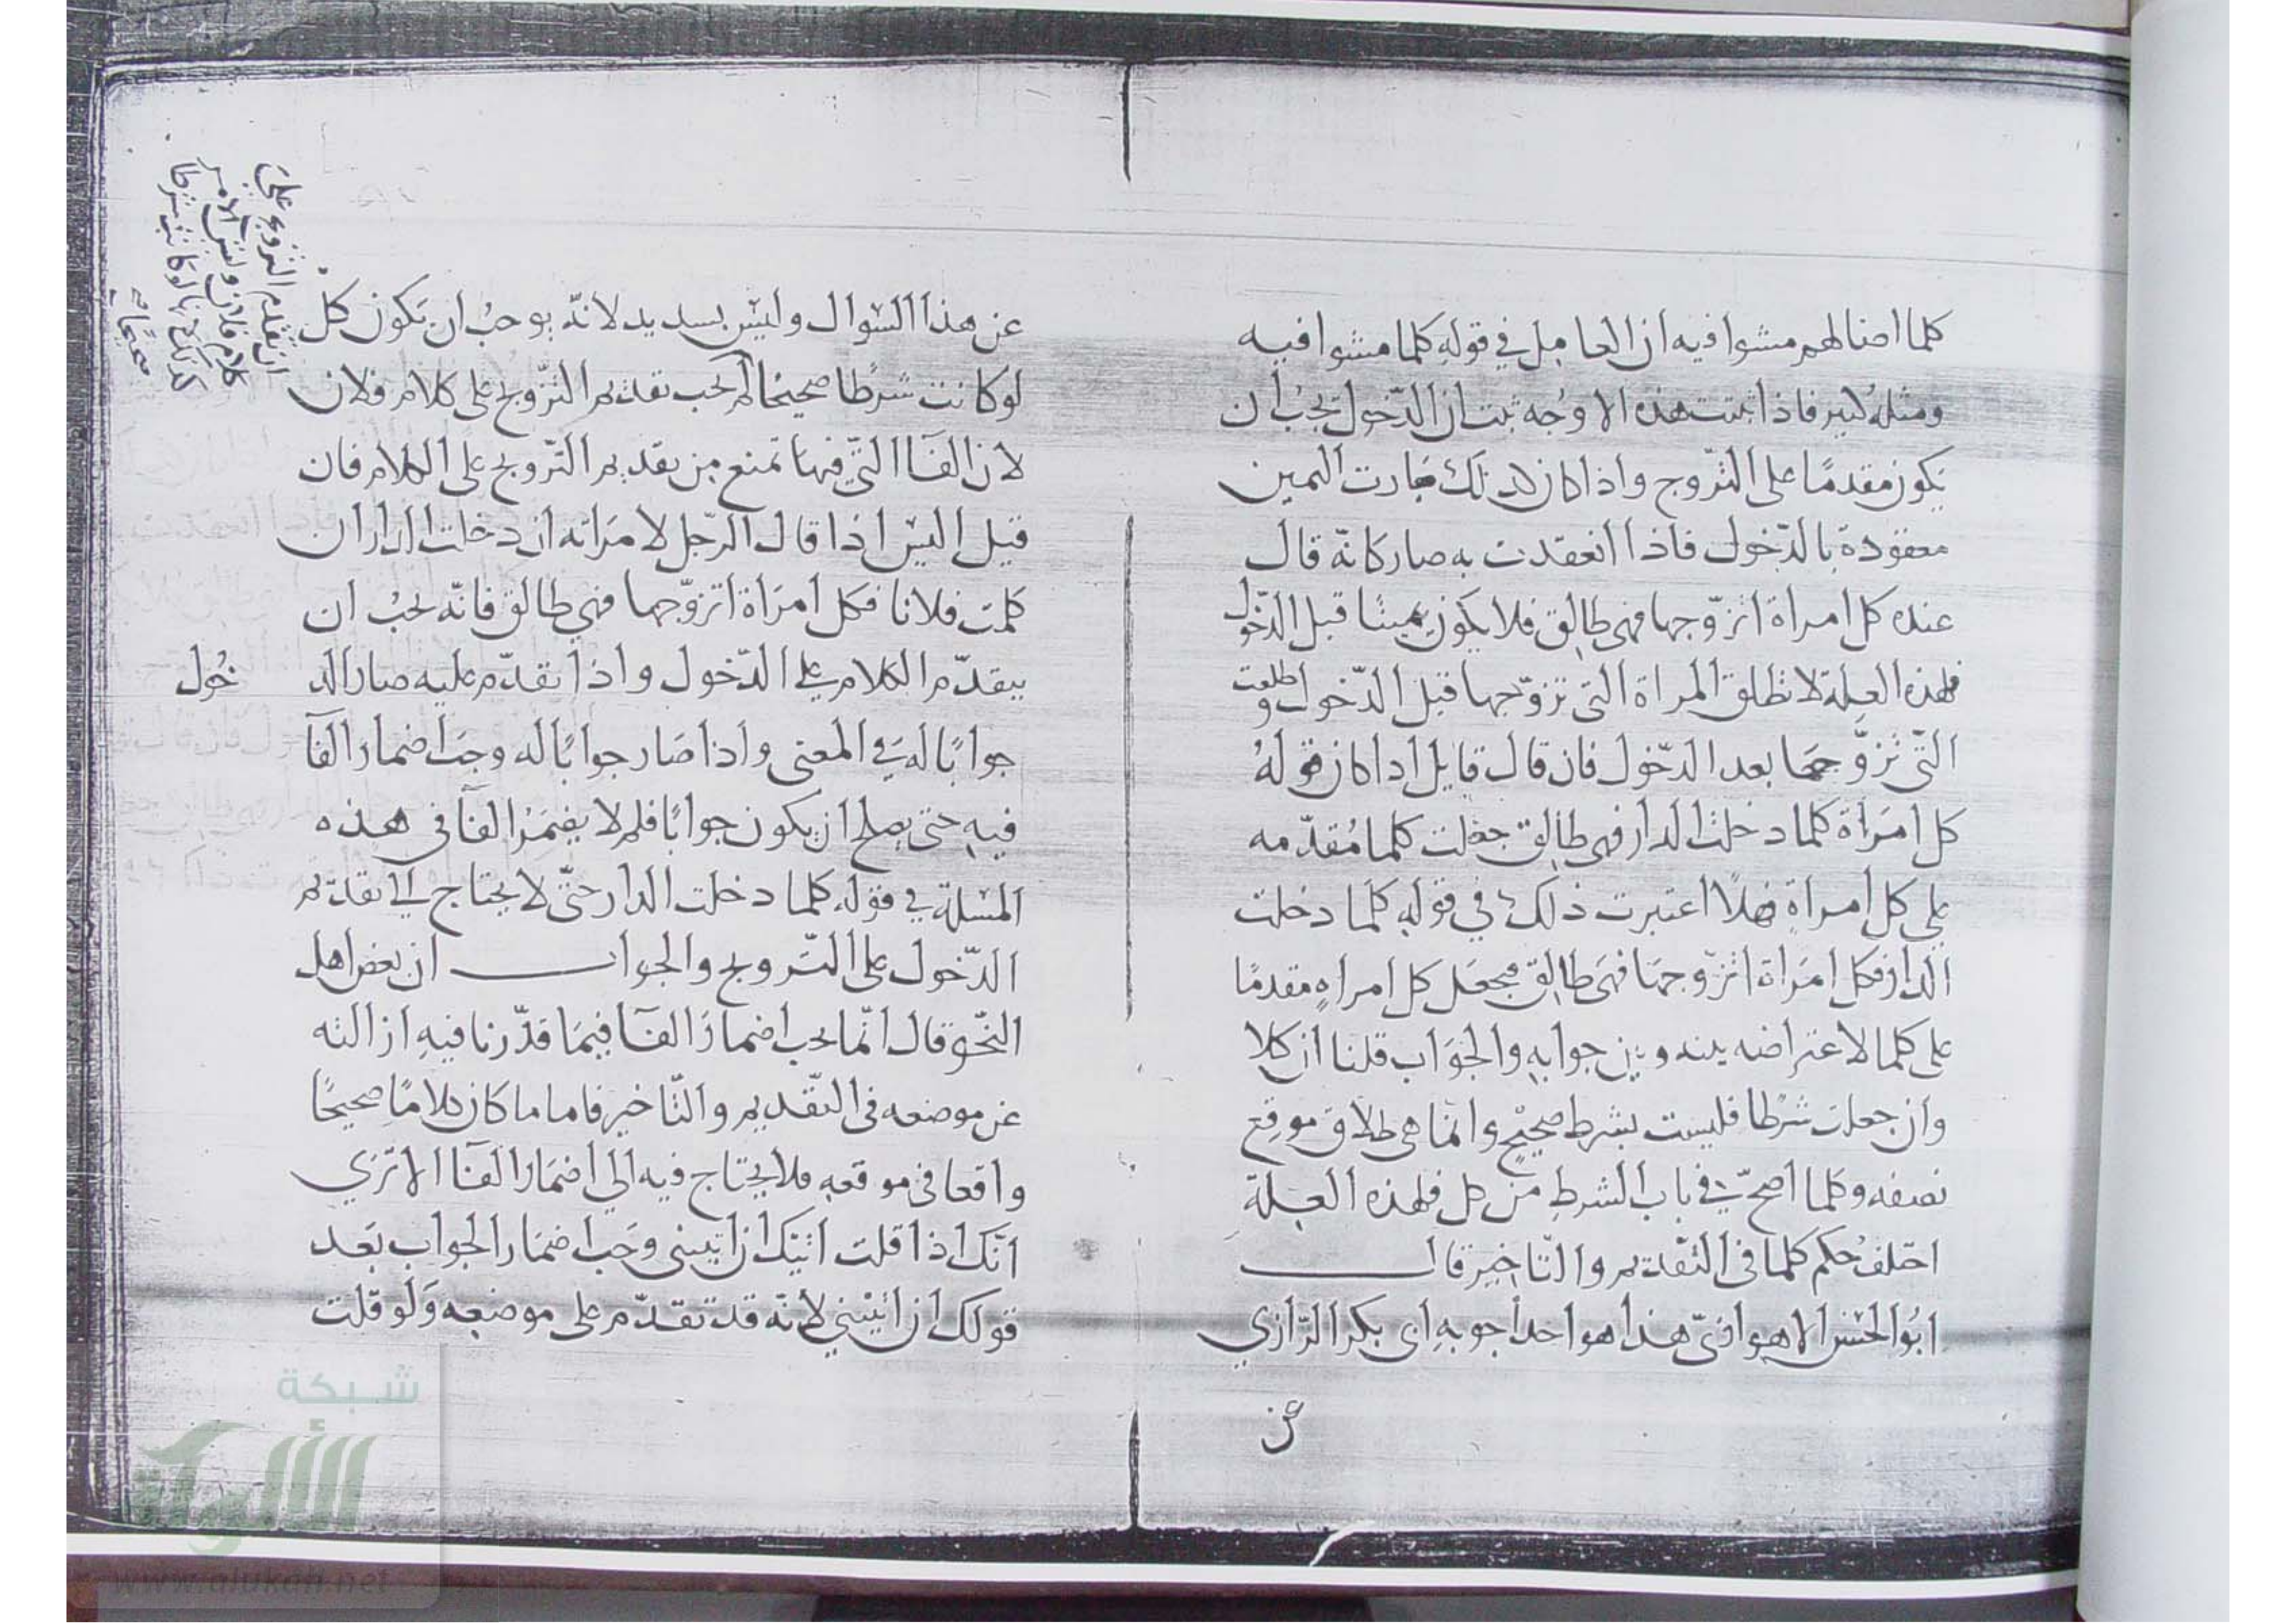 كلما اضالهم مشوا فيه ان العامل في قوله كلما مشوا فيه
ومثله كثير فاذا ثبتت هذه الاوجه ثبت ان الدّخول يجب ان
يكون مقدمًا على التّزوج واذا كان كذلك صارت اليمين
معقودة بالدّخول فاذا انعقدت به صار كانّه قال
عنده كل امراة اتزوّجها فهي طالق فلا يكون يمينًا قبل الدّخول
فلهذه العلة لا تطلق المراة التي تزوّجها قبل الدّخول وطلقت
التّي تزوّجها بعد الدّخول فان قال قايل اذا كان قوله
كل امراة كلما دخلت الدار فهي طالق جعلت كلما مُقدّمه
على كل امراةٍ فهلّا اعتبرت ذلك في قوله كلّما دخلت
الدار فكل امراة اتزوّجها فهي طالق فجعل كل امراهٍ مقدمًا
على كلما لاعتراضه بينه وبين جوابه والجواب قلنا ان كلا
وان جعلت شرطًا فليست بشرط صحيحٍ وانما هي طلاق موقع
نصفه وكلما اصحّ في باب الشرط من كل فلهذه العلة
اختلف حُكم كلما في التّقديم والتّاخير قال
ابُو الحسن الاهوازيّ هذا هو احد اجوبه ابي بكر الرّازي
عن
عن هذا السّوال وليس بسديد لانّه يوجبُ ان يكون كل
لو كانت شرطًا صحيحًا لم يجب تقديم التّزويج على كلام فلان
لان الفاا التّي فيها تمنع من تقديم التّزويج على الكلام فان
قيل اليس اذا قال الرّجل لامراته ان دخلت الدار ان
كلمت فلانا فكل امراة اتزوّجها فهي طالق فانّه يجبُ ان
يتقدّم الكلام على الدّخول واذا تقدّم عليه صار الد خُول
جوابًا له في المعنى واذا صار جوابًا له وجب اضمار الفا
فيه حتى يصلح ان يكون جوابًا فلم لا يضمرُ الفا في هذه
المسلة في قوله كلما دخلت الدار حتّى لا يحتاج الي تقديم
الدّخول على التّزويج والجواب ان بعض اهل
النّحو قال انّما يجب اضمار الفا فيما قدّرنا فيه ازالته
عن موضعه في التّقديم والتّاخير فاما ما كان كلامًا صحيحًا
واقعا في موقعه فلا يحتاج فيه الي اضمار الفاا الا تري
انّك اذا قلت اتيتك ان اتيتني وجب اضمار الجواب بعد
قولك ان اتيتني لانّه قد تقدّم على موضعه ولو قلت
ان تقدم التزويج على
كلام فلان وليس الامر
كذلك لانها لو كانت شرطا
صحيحًا
شبكة
الألوكة
www.alukah.net